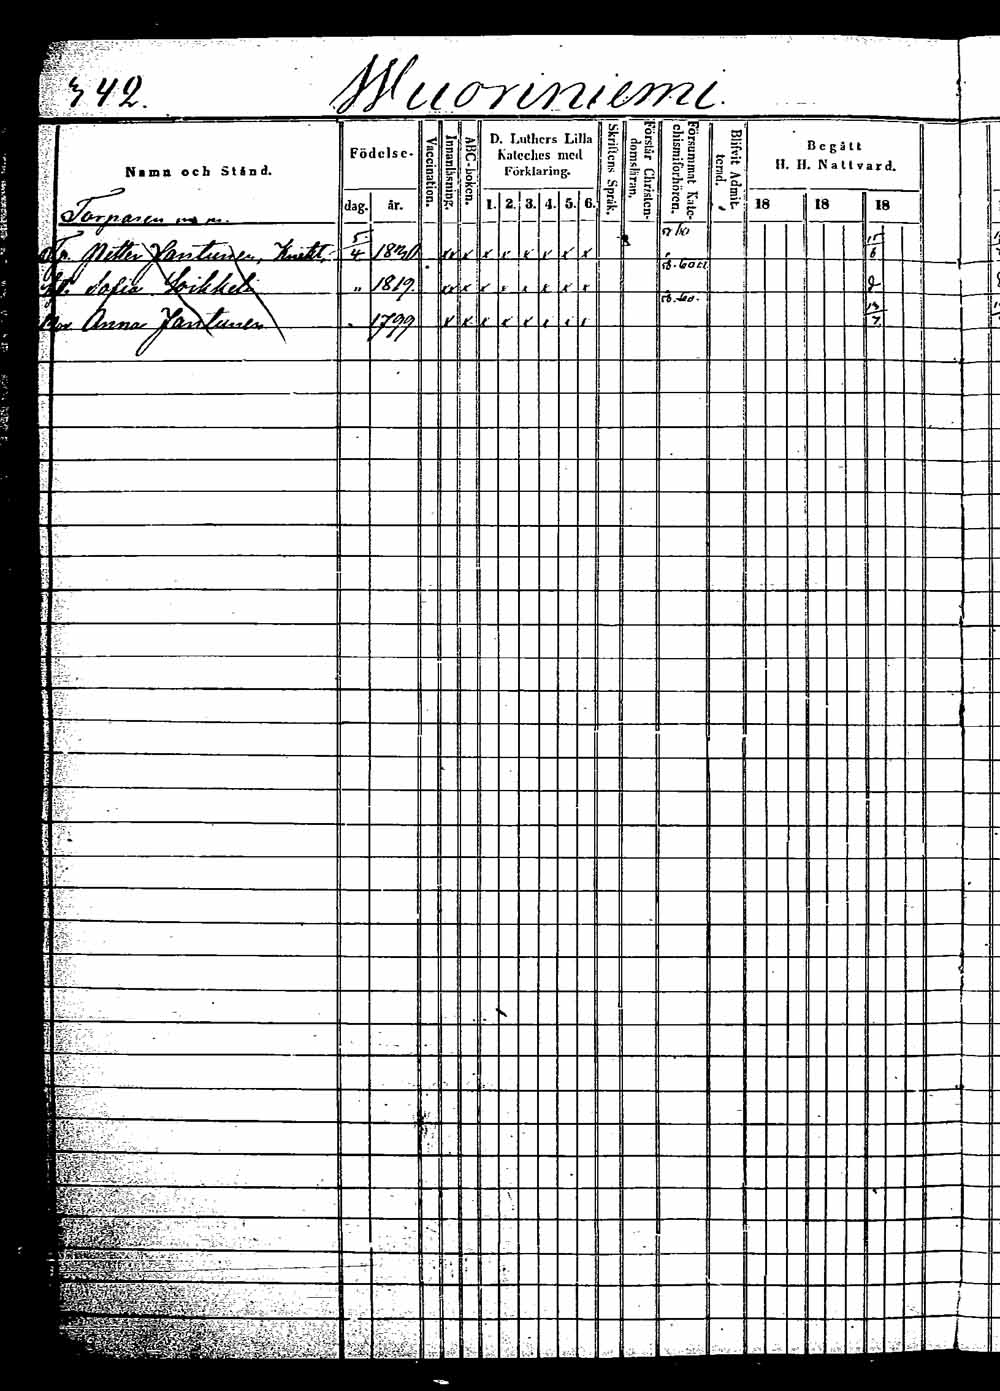 342. Wuoriniemi.
Namn och Stånd.
Födelse-
dag. år.
Vaccination.
Innanläsning.
ABC-boken.
D. Luthers Lilla
Kateches med
Förklaring.
1. 2. 3. 4. 5. 6.
Skriftens Språk.
Förstår Christen-
domsläran.
Försummat Kate-
chismiförhören.
Blifvit Admit-
terad.
Begått
H. H. Nattvard.
18 18 18
Torparen
Petter Jantunen, Knekt, 5/4 1830 x x x x x x x x
Sofia " 1819. x x x x x x x x
Anna Jantunen 1799 x x x x x x x x